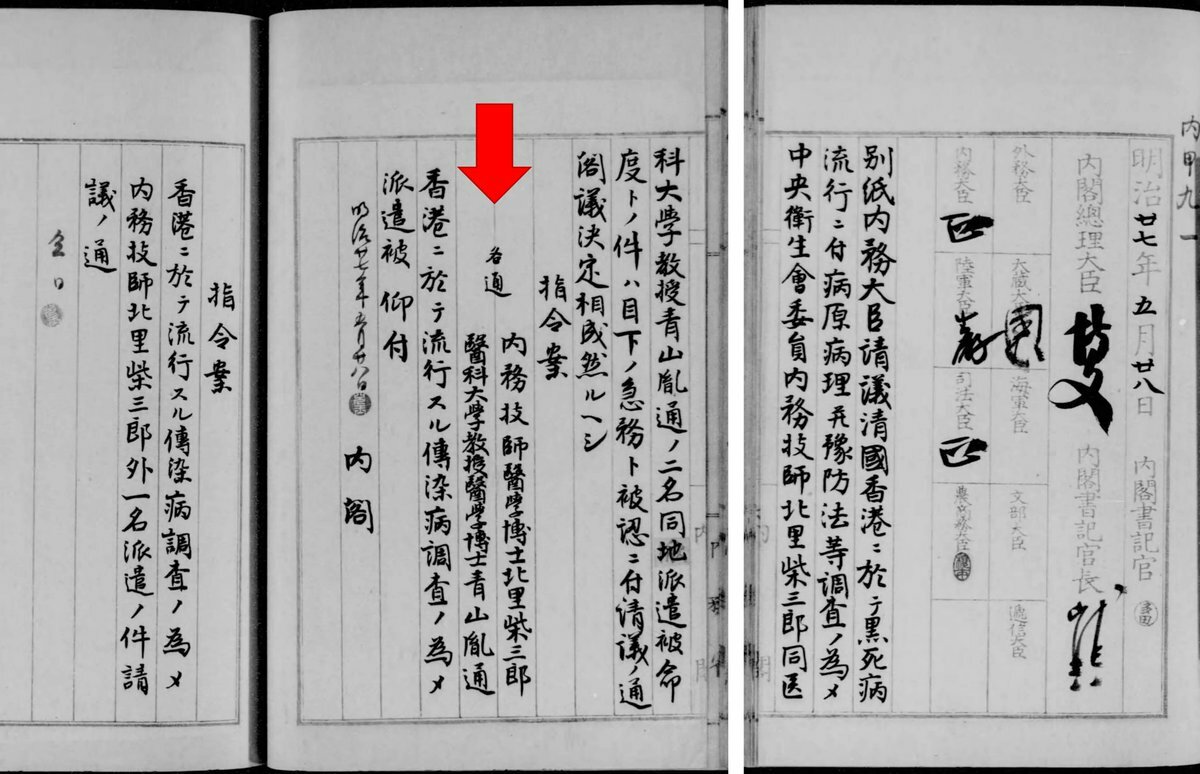 内甲九一
明治廿七年五月廿八日
内閣書記官
内閣總理大臣
内閣書記官長
外務大臣
大藏大臣
海軍大臣
文部大臣
遞信大臣
内務大臣
陸軍大臣
司法大臣
農商務大臣
別紙内務大臣請議清國香港ニ於テ黒死病
流行ニ付病原病理并豫防法等調査ノ為メ
中央衛生會委員内務技師北里柴三郎同医
科大學教授青山胤通ノ二名同地派遣被命
度トノ件ハ目下ノ急務ト被認ニ付請議ノ通
閣議決定相成然ルヘシ
指令案
各通
内務技師醫學博士北里柴三郎
醫科大學教授醫學博士青山胤通
香港ニ於テ流行スル傳染病調査ノ為メ
派遣被仰付
明治廿七年五月廿八日
内閣
指令案
香港ニ於テ流行スル傳染病調査ノ為メ
内務技師北里柴三郎外一名派遣ノ件請
議ノ通
仝日